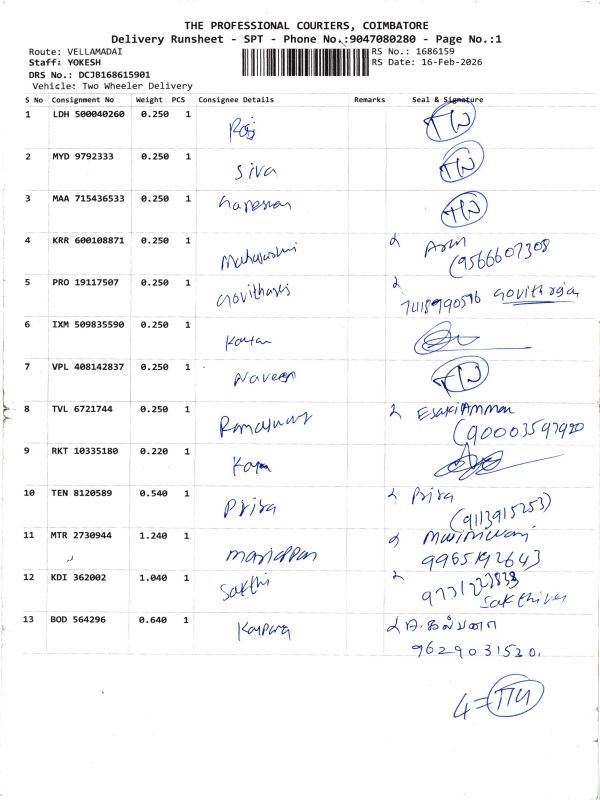 THE PROFESSIONAL COURIERS, COIMBATORE
Delivery Runsheet - SPT - Phone No.:9047080280 - Page No.:1
Route: VELLAMADAI RS No.: 1686159
Staff: YOKESH RS Date: 16-Feb-2026
DRS No.: DCJB168615901
Vehicle: Two Wheeler Delivery
S No Consignment No Weight PCS Consignee Details Remarks Seal & Signature
1 LDH 500040260 0.250 1 Raj
2 MYD 9792333 0.250 1 Siva
3 MAA 715436533 0.250 1
4 KRR 600108871 0.250 1 Arun
(9566607308
5 PRO 19117507 0.250 1
7418990596 Govithraja
6 IXM 509835590 0.250 1
7 VPL 408142837 0.250 1 Naveen
8 TVL 6721744 0.250 1 EsakiAmmal
(90003597920
9 RKT 10335180 0.220 1
10 TEN 8120589 0.540 1 Priya Priya
(9113915253)
11 MTR 2730944 1.240 1 mariappan
9965192643
12 KDI 362002 1.040 1 Sakthi
Sakthivel
13 BOD 564296 0.640 1
9629031520.
4=